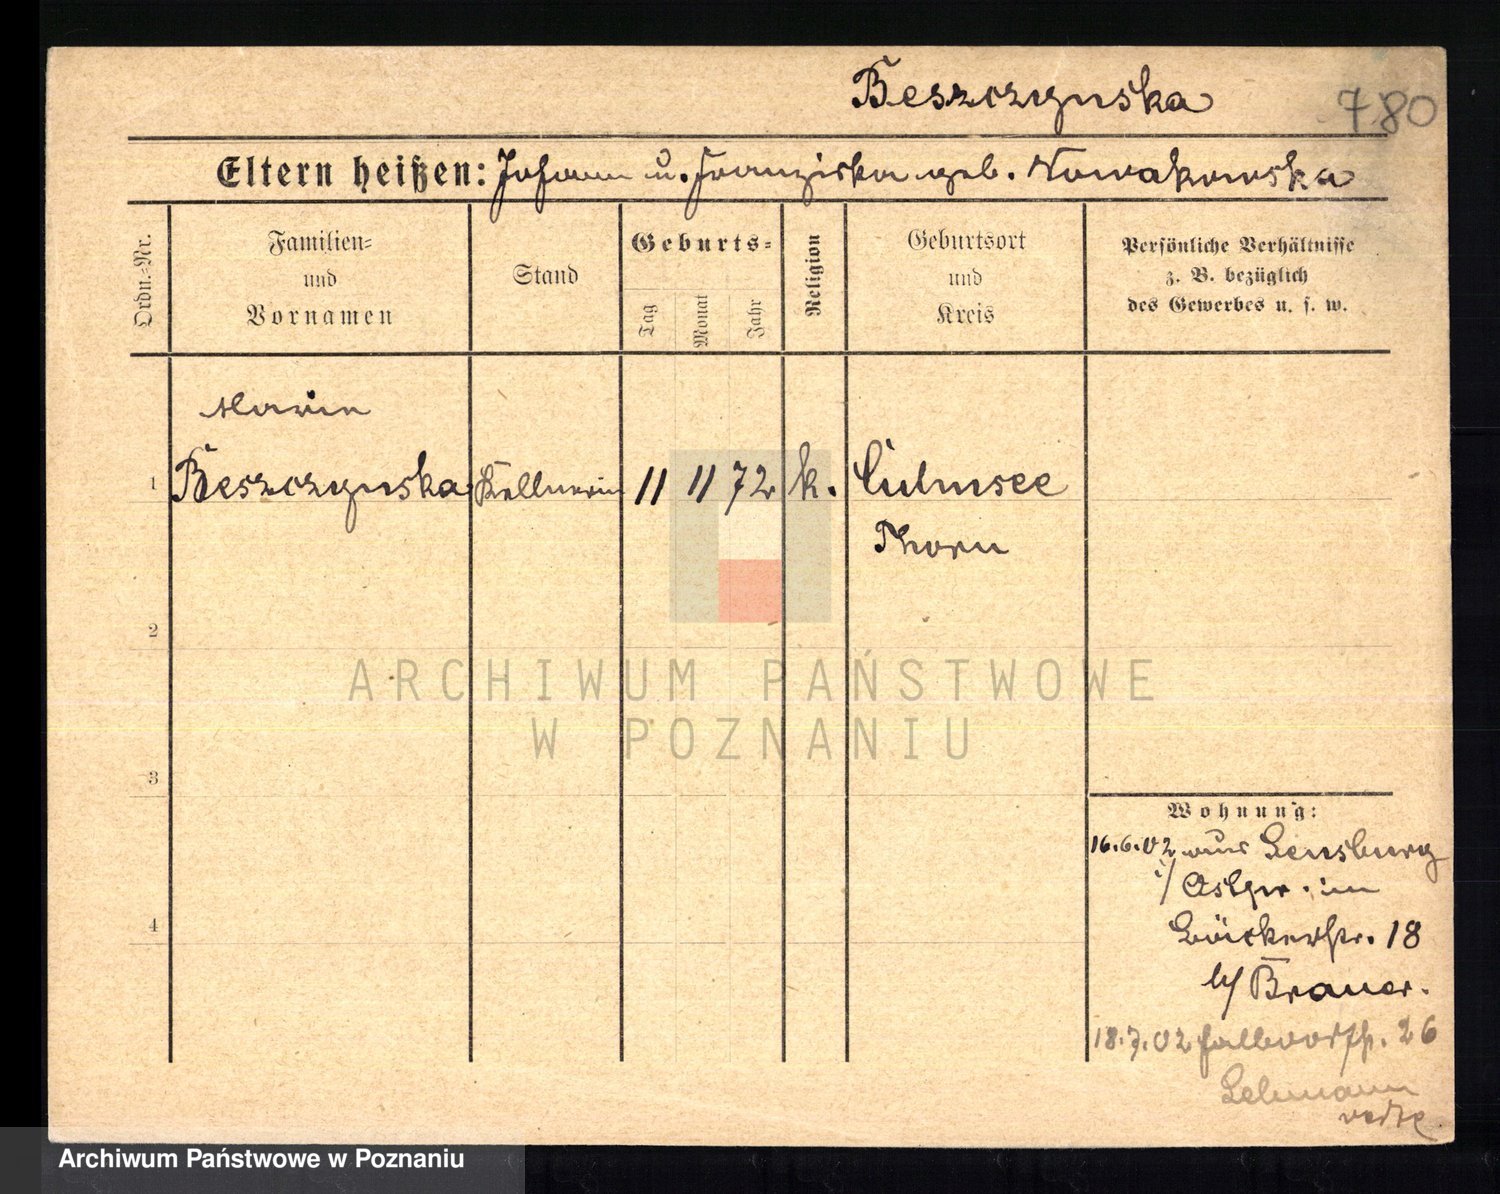 Beszczynska 780
Eltern heißen: Johann u. Franziska geb. Nowakowska
Ordn.=Nr.
Familien=
und
Vornamen
Stand
Geburts=
Tag
Monat
Jahr
Religion
Geburtsort
und
Kreis
Persönliche Verhältnisse
z. B. bezüglich
des Gewerbes u. s. w.
Marie
1 Beszczynska Kellnerin 11 11 72 k. Culmsee
Thorn
2
ARCHIWUM PAŃSTWOWE
W POZNANIU
3
4
Wohnung:
16.6.02 aus Sensburg
i/ Ostpr. im
Bäckerstr. 18
b/ Brauer.
18.7.02 Halbdorfstr. 26
Lehmann
Archiwum Państwowe w Poznaniu